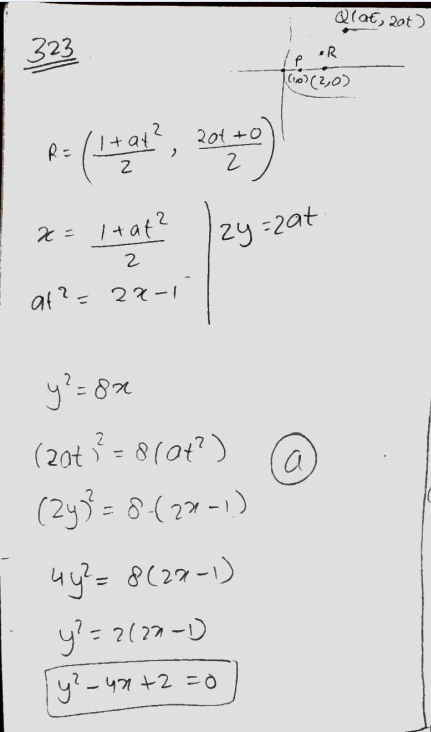 323
Q(at², 2at)
P
R
(1,0) (2,0)
R = (1+at²/2, 2at+0/2)
x = 1+at²/2
2y = 2at
at² = 2x-1
y² = 8x
(2at)² = 8(at²)
a
(2y)² = 8·(2x-1)
4y² = 8(2x-1)
y² = 2(2x-1)
y² - 4x + 2 = 0